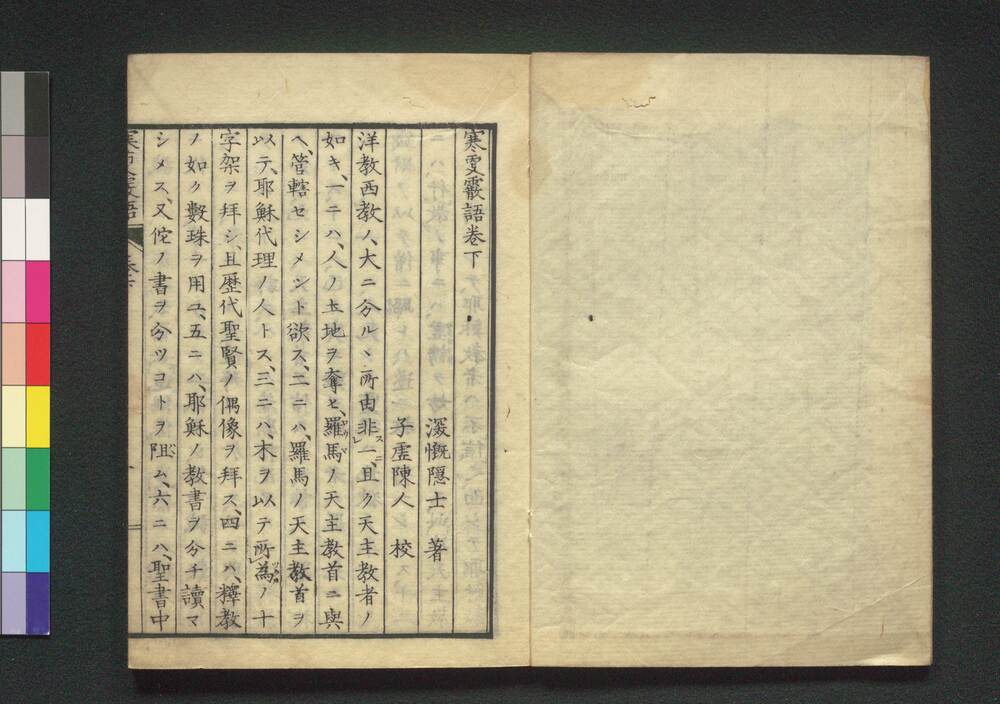 寒更霰語卷下
深慨隱士 著
子虛陳人 校
洋教西教ノ、大ニ分ルヽ、所由非一、且ク天主教者ノ
如キ、一ニハ、人ノ土地ヲ奪ヒ、羅馬ノ天主教首ニ與
ヘ、管轄セシメント欲ス、二ニハ、羅馬ノ天主教首ヲ
以テ、耶穌代理ノ人トス、三ニハ、木ヲ以テ所為ノ十
字架ヲ拜シ、且歷代聖賢ノ偶像ヲ拜ス、四ニハ、釋教
ノ如ク數珠ヲ用ユ、五ニハ、耶穌ノ教書ヲ分チ讀マ
シメス、又佗ノ書ヲ分ツコトヲ阻ム、六ニハ、聖書中